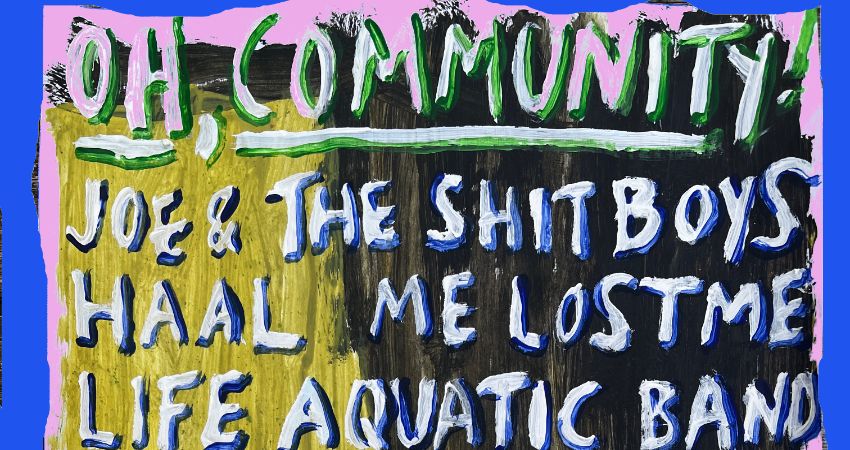 OH, COMMUNITY!
JOE & THE SHITBOYS
HAAL ME LOST ME
LIFE AQUATIC BAND